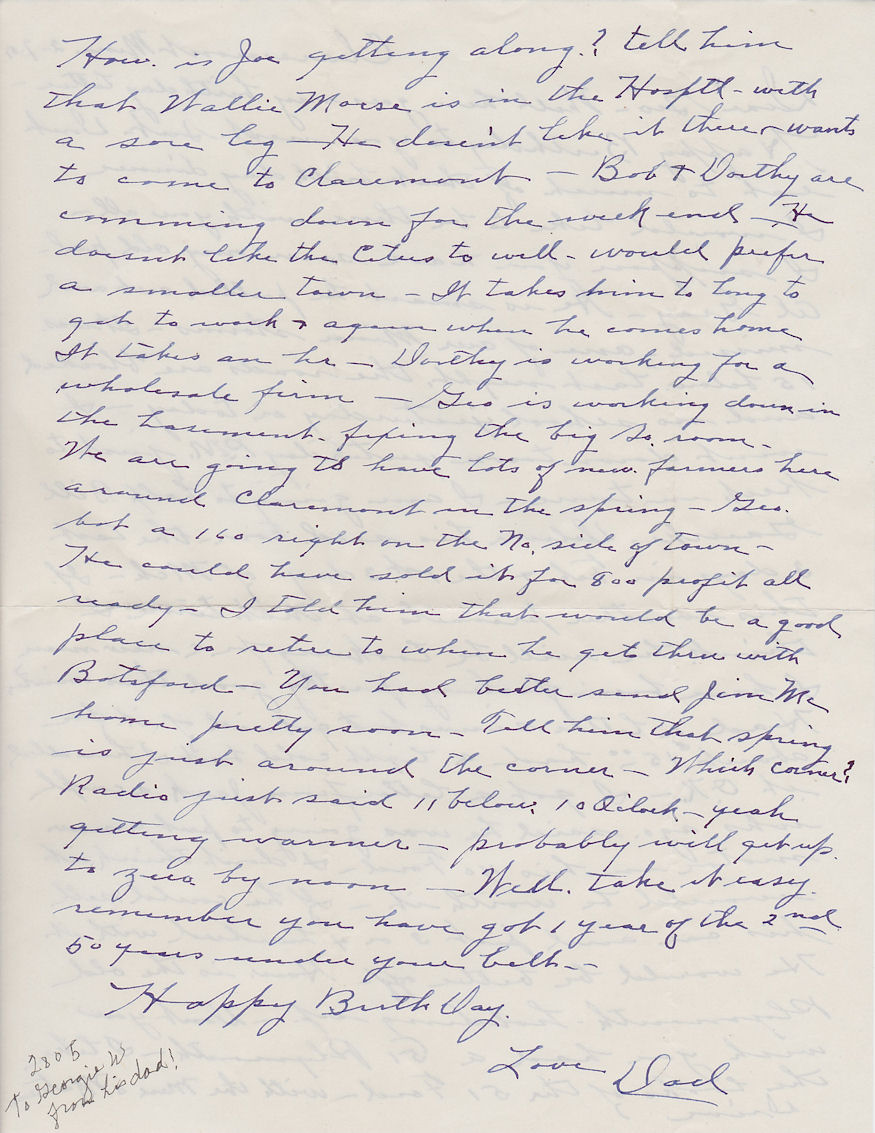 How. is Joe getting along? tell him
that Wallie Morse is in the Hosptl - with
a sore leg - He doesn't like it there & wants
to come to Claremont - Bob & Dorthy are
comming down for the week end - He
doesnt like the Cities to well - would prefer
a smaller town - It takes him to long to
get to work & again when he comes home
It takes an hr - Dorthy is working for a
wholesale firm - Geo is working down in
the basement - fixing the big So. room -
We are going to have lots of new. farmers here
around Claremont in the spring - Geo.
bot a 160 right on the No. side of town -
He could have sold it for 800 profit all
ready - I told him that would be a good
place to retire to when he gets thru with
Botsford - You had better send Jim Mc
home pretty soon - Tell him that spring
is just around the corner - Which corner?
Radio just said 11 below. 10 Oclock - yeah
getting warmer - probably will get up.
to zero by noon - Well. take it easy.
remember you have got 1 year of the 2nd
50 years under your belt -
Happy Birth Day.
Love Dad
2805
To Georgie W
from his dad!